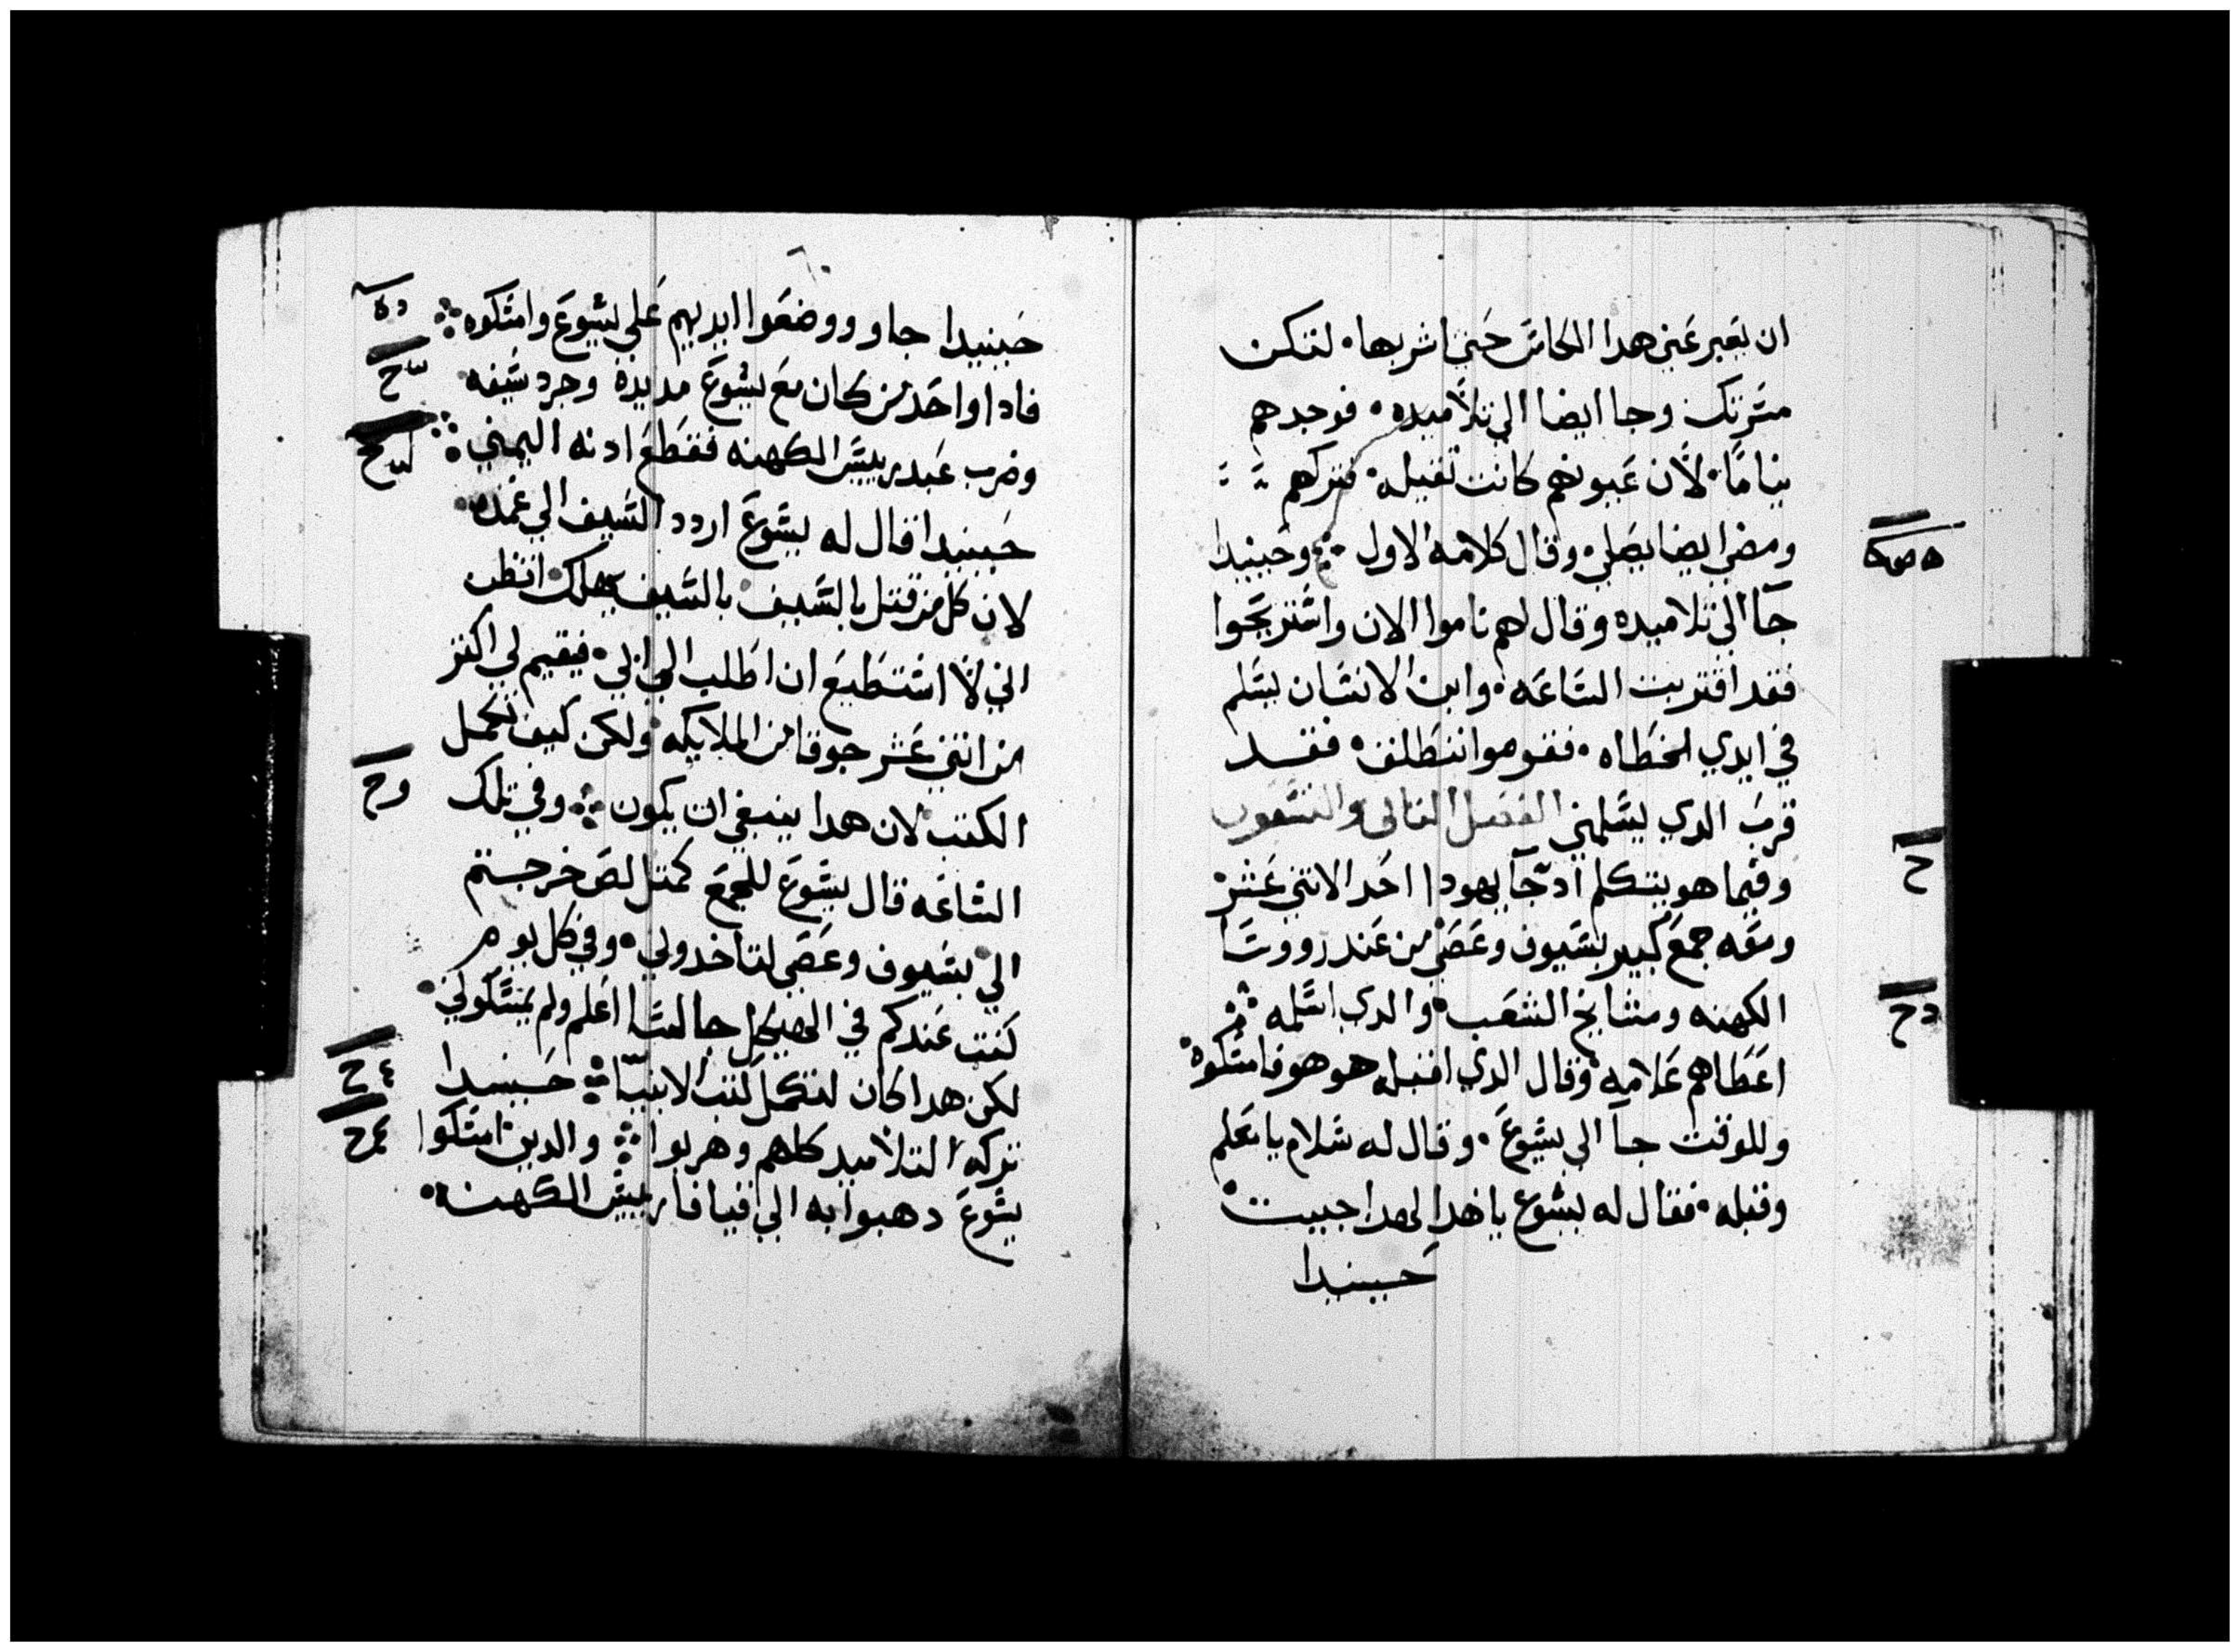 ان يعبر عني هدا الكاس حتي اشربها۰ لتكن
مسرتك وجا ايضا الي تلاميده۰ فوجدهم
نياما۰ لان عيونهم كانت تقيله۰ فتركهم
ومضي ايضا يصلي۰ وقال كلامه الاول ؞ وحينيدا
جا الي تلاميده وقال لهم ناموا الان واستريحوا
فقد اقتربت الساعه۰ وابن الانسان يسلم
في ايدي الخطاه۰ فقوموا ننطلق۰ فقد
قرب الدي يسلمني الفصل التاني والتسعون
وفيما هو يتكلم اد جا يهودا احد الاتني عشر۰
ومعه جمع كبير بسيوف وعصي من عند رووسا
الكهنه ومشايخ الشعب۰ والدي اسلمه ؞
اعطاهم علامه۰ وقال الدي اقبله هو هو فامسكوه۰
وللوقت جا الي يسوع۰ وقال له سلام يا معلم
وقبله۰ فقال له يسوع يا هدا لهدا جييت۰
حينيدا
حينيدا جاوو ووضعوا ايديهم علي يسوع وامسكوه ؞
فادا واحد من كان مع يسوع مد يده وجرد سيفه
وضرب عبد رييس الكهنه فقطع ادنه اليمني ؞
حينيدا قال له يسوع اردد السيف الي غمده۰
لان كل من قتل بالسيف۰ بالسيف يهلك۰ اتظن
اني لا استطيع ان اطلب الي ابي۰ فيقيم لي اكتر
من اتني عشر جوقا من الملايكه۰ ولكن كيف تكمل
الكتب لان هدا ينبغي ان يكون ؞ وفي تلك
الساعه قال يسوع للجمع كمتل لص خرجتم
الي بسيوف وعصي لتاخدوني۰ وفي كل يوم
كنت عندكم في الهيكل جالسا اعلم ولم تمسكوني۰
لكن هدا كان لتكمل كتب الانبيا ؞ حينيدا
تركه التلاميد كلهم وهربوا ؞ والدين امسكوا
يسوع دهبوا به الي قيافا رييس الكهنه۰